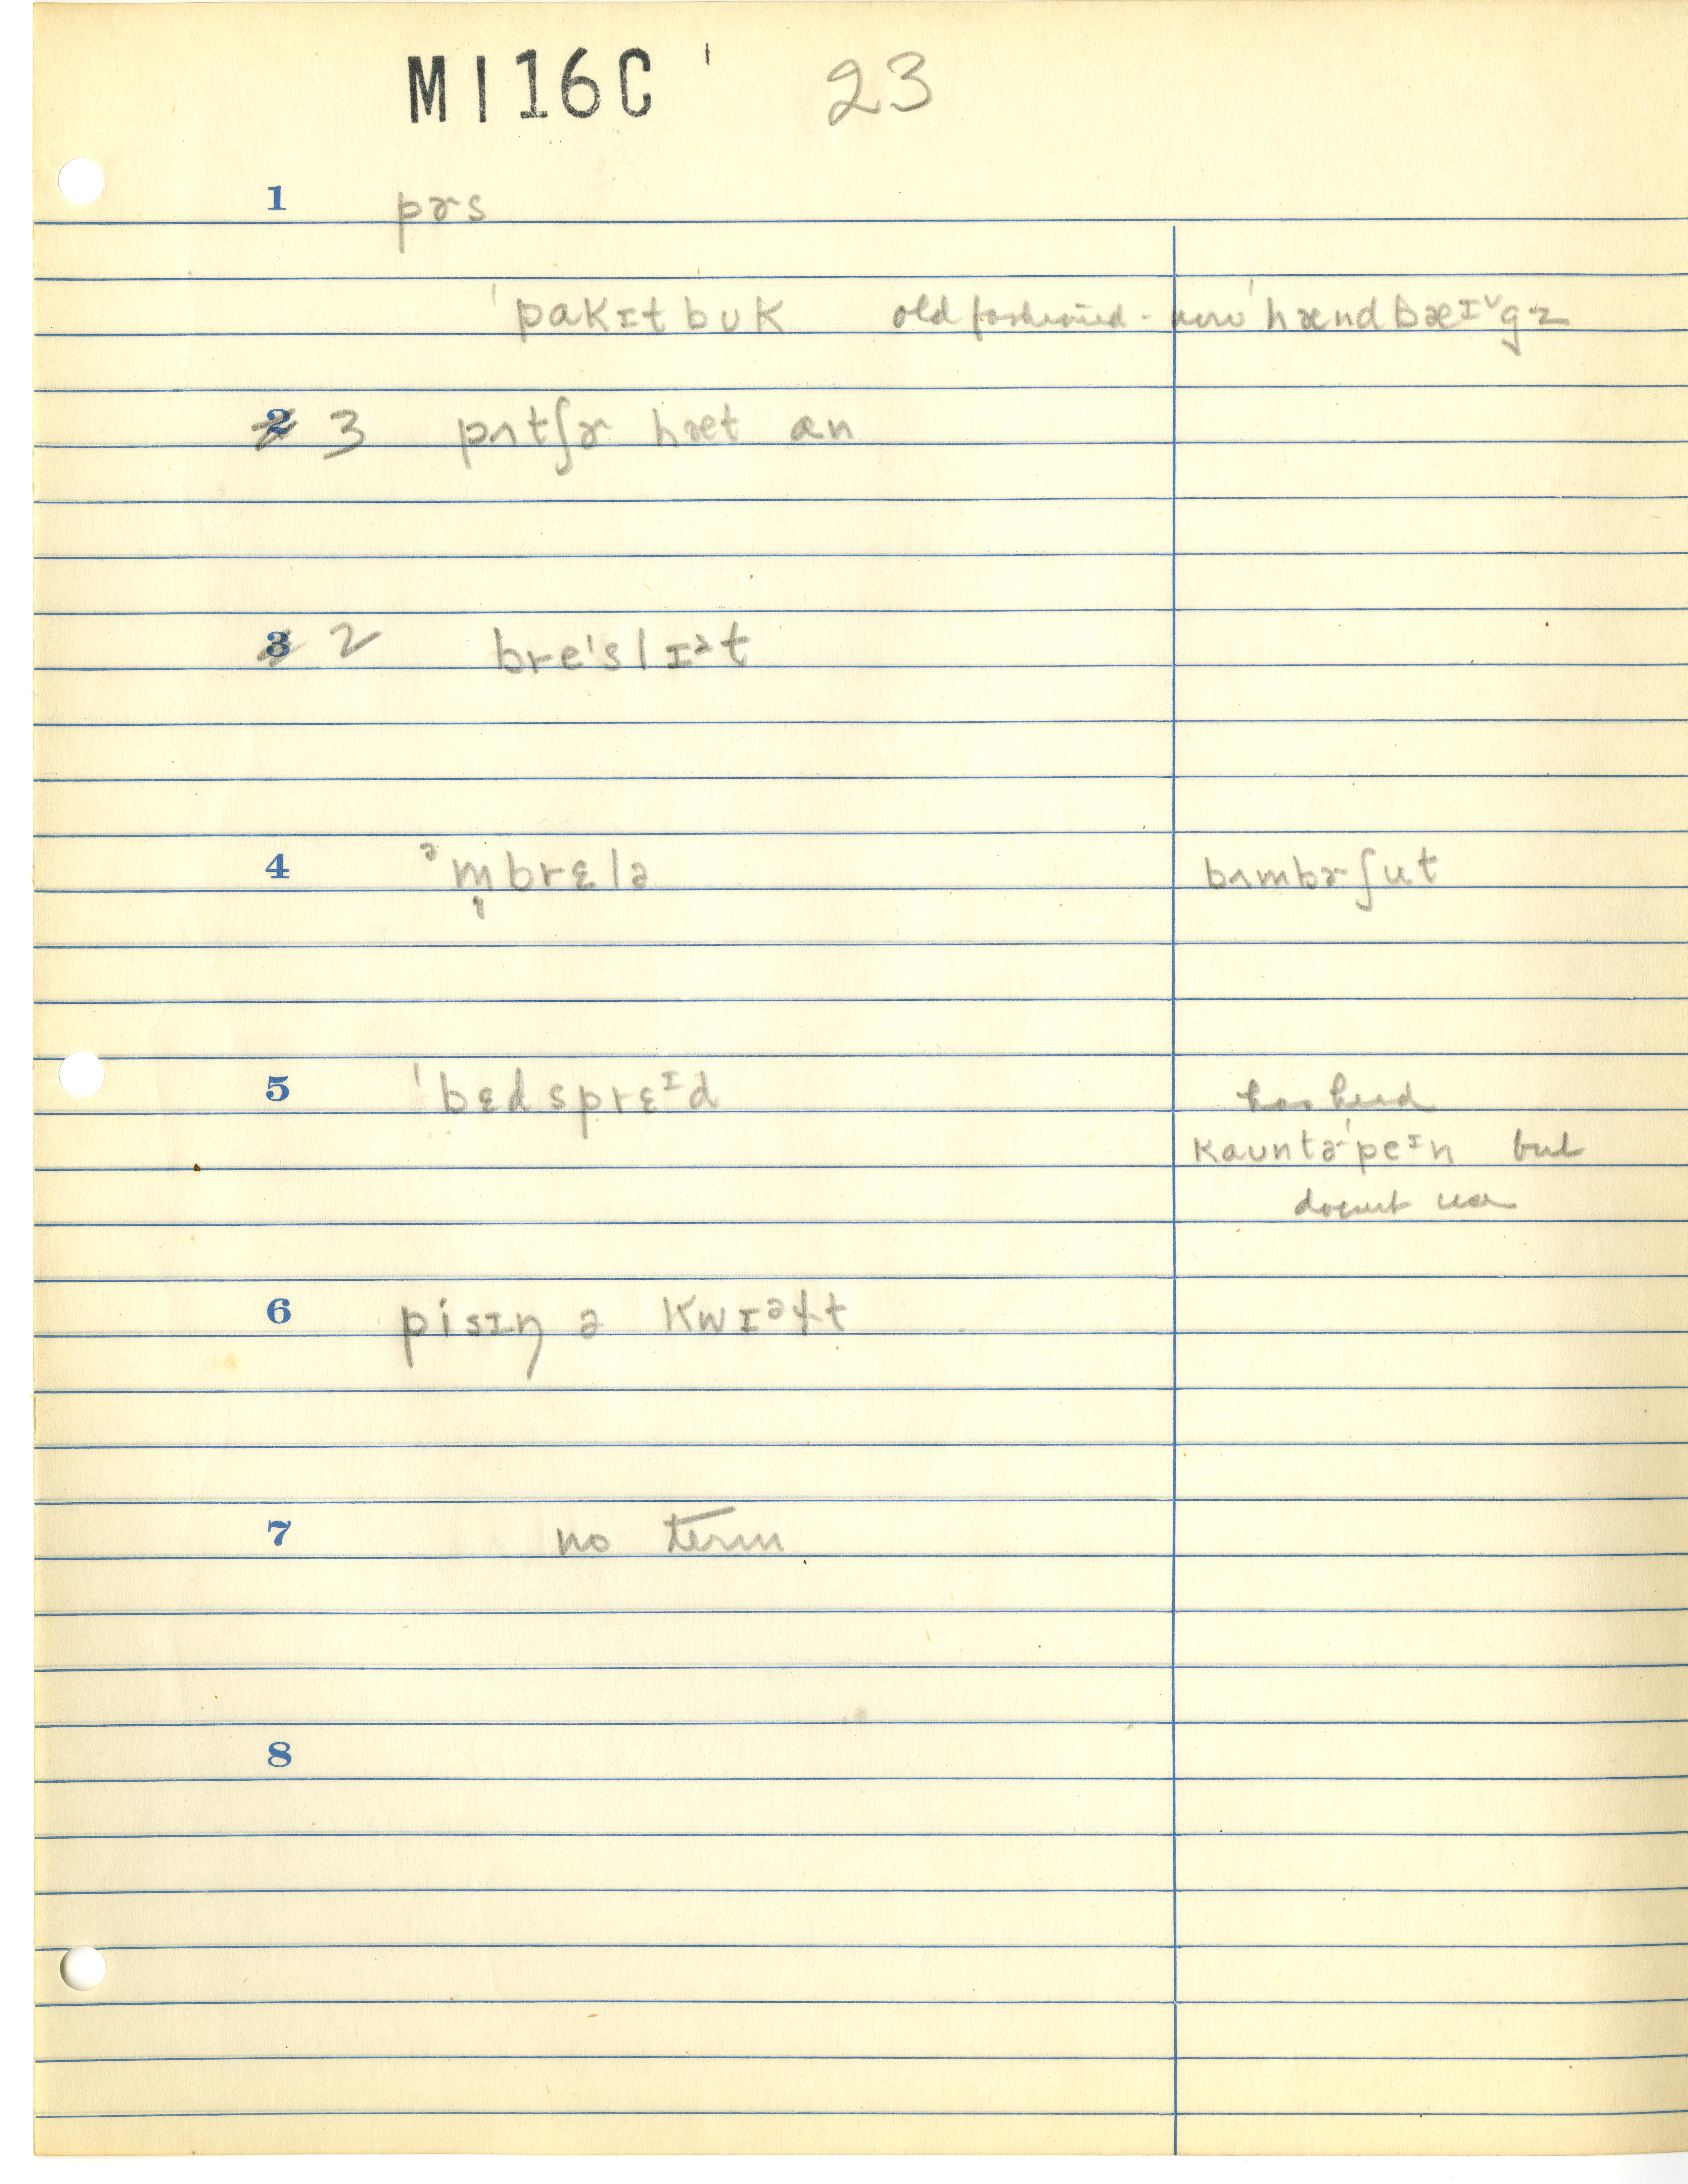 MI16C ' 23
1 pɚs
ˈpakɪtbʊk old fashioned - now ˈhændbæɪ˅gz
2 3 pʌtʃɚ hæt ɑn
3 2 breˈslɪᵊt
4 ᵊm̩brɛlə bʌmbɚʃut
5 ˈbɛdsprɛᴵd has heard
kaʊntɚˈpeᴵn but
doesnt use
6 pisɪŋ ə kwɪᵊɫt
7 no term
8